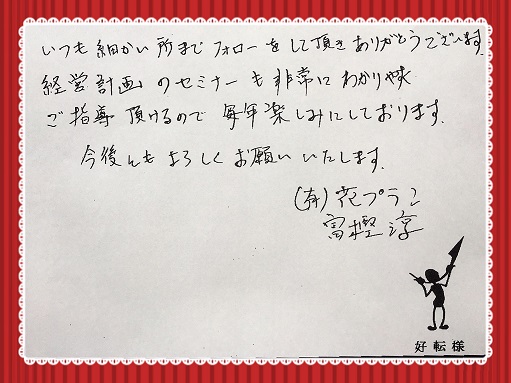 いつも細かい所までフォローをして頂きありがとうございます。
経営計画のセミナーも非常にわかりやすく
ご指導頂けるので毎年楽しみにしております。
今後ともよろしくお願いいたします。
(有)花プラン
富樫 淳
好転様